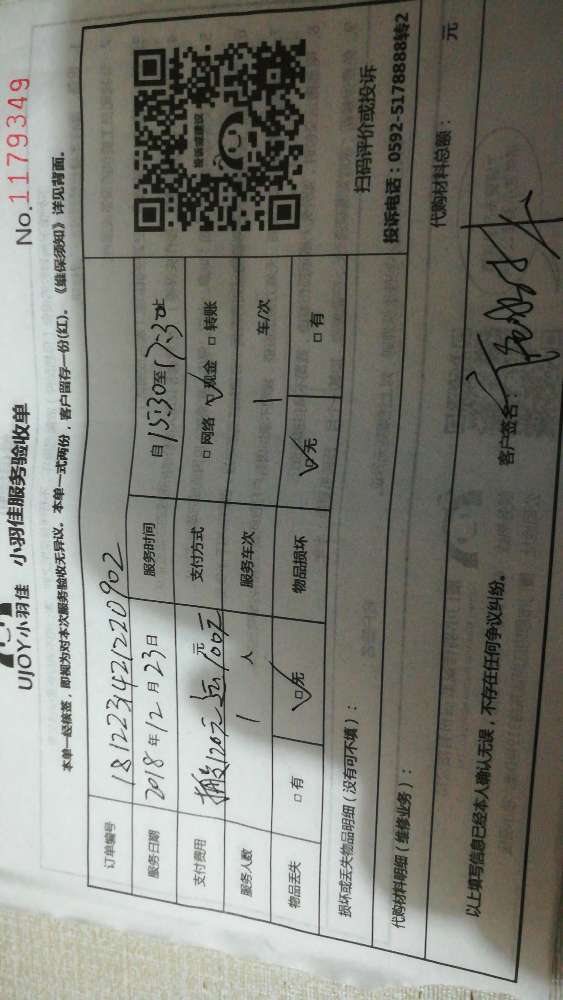 No.1179349
UJOY小羽佳 小羽佳服务验收单
本单一经核签，即视为对本次服务验收无异议。本单一式两份，客户留存一份(红)。《维保须知》详见背面。
订单编号 1812231421220902
服务日期 2018年12月23日 服务时间 自15:30至17:30止
支付费用 搬120元 100元 元 支付方式 □网络 ☑现金 □转账
服务人数 1 人 服务车次 1 车/次
物品丢失 □有 ☑无 物品损坏 ☑无 □有
投诉或建议
扫码评价或投诉
投诉电话：0592-5178888转2
损坏或丢失物品明细（没有可不填）：
代购材料明细（维修业务）： 代购材料总额： 元
以上填写信息已经本人确认无误，不存在任何争议纠纷。 客户签名：